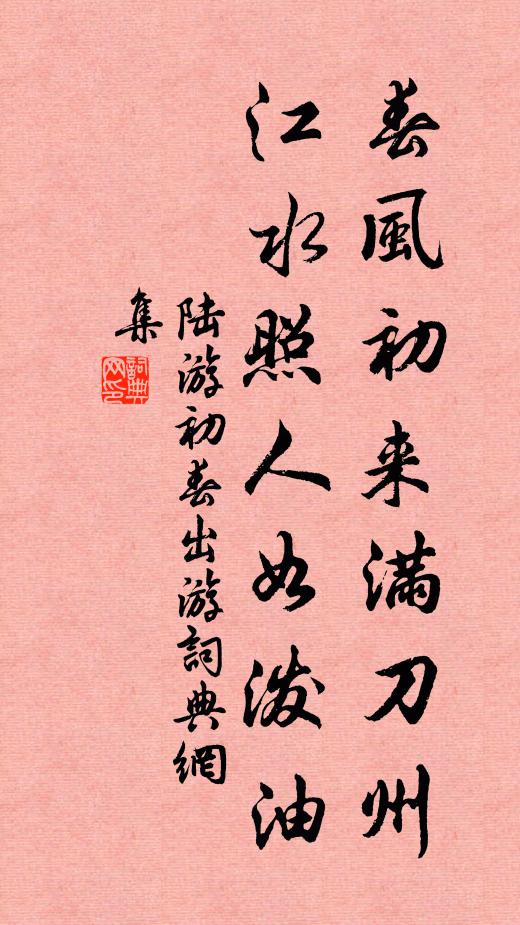 春風初来满刀州
江水照人如泼油
陆游初春出游詞典網
集
詞典
网印